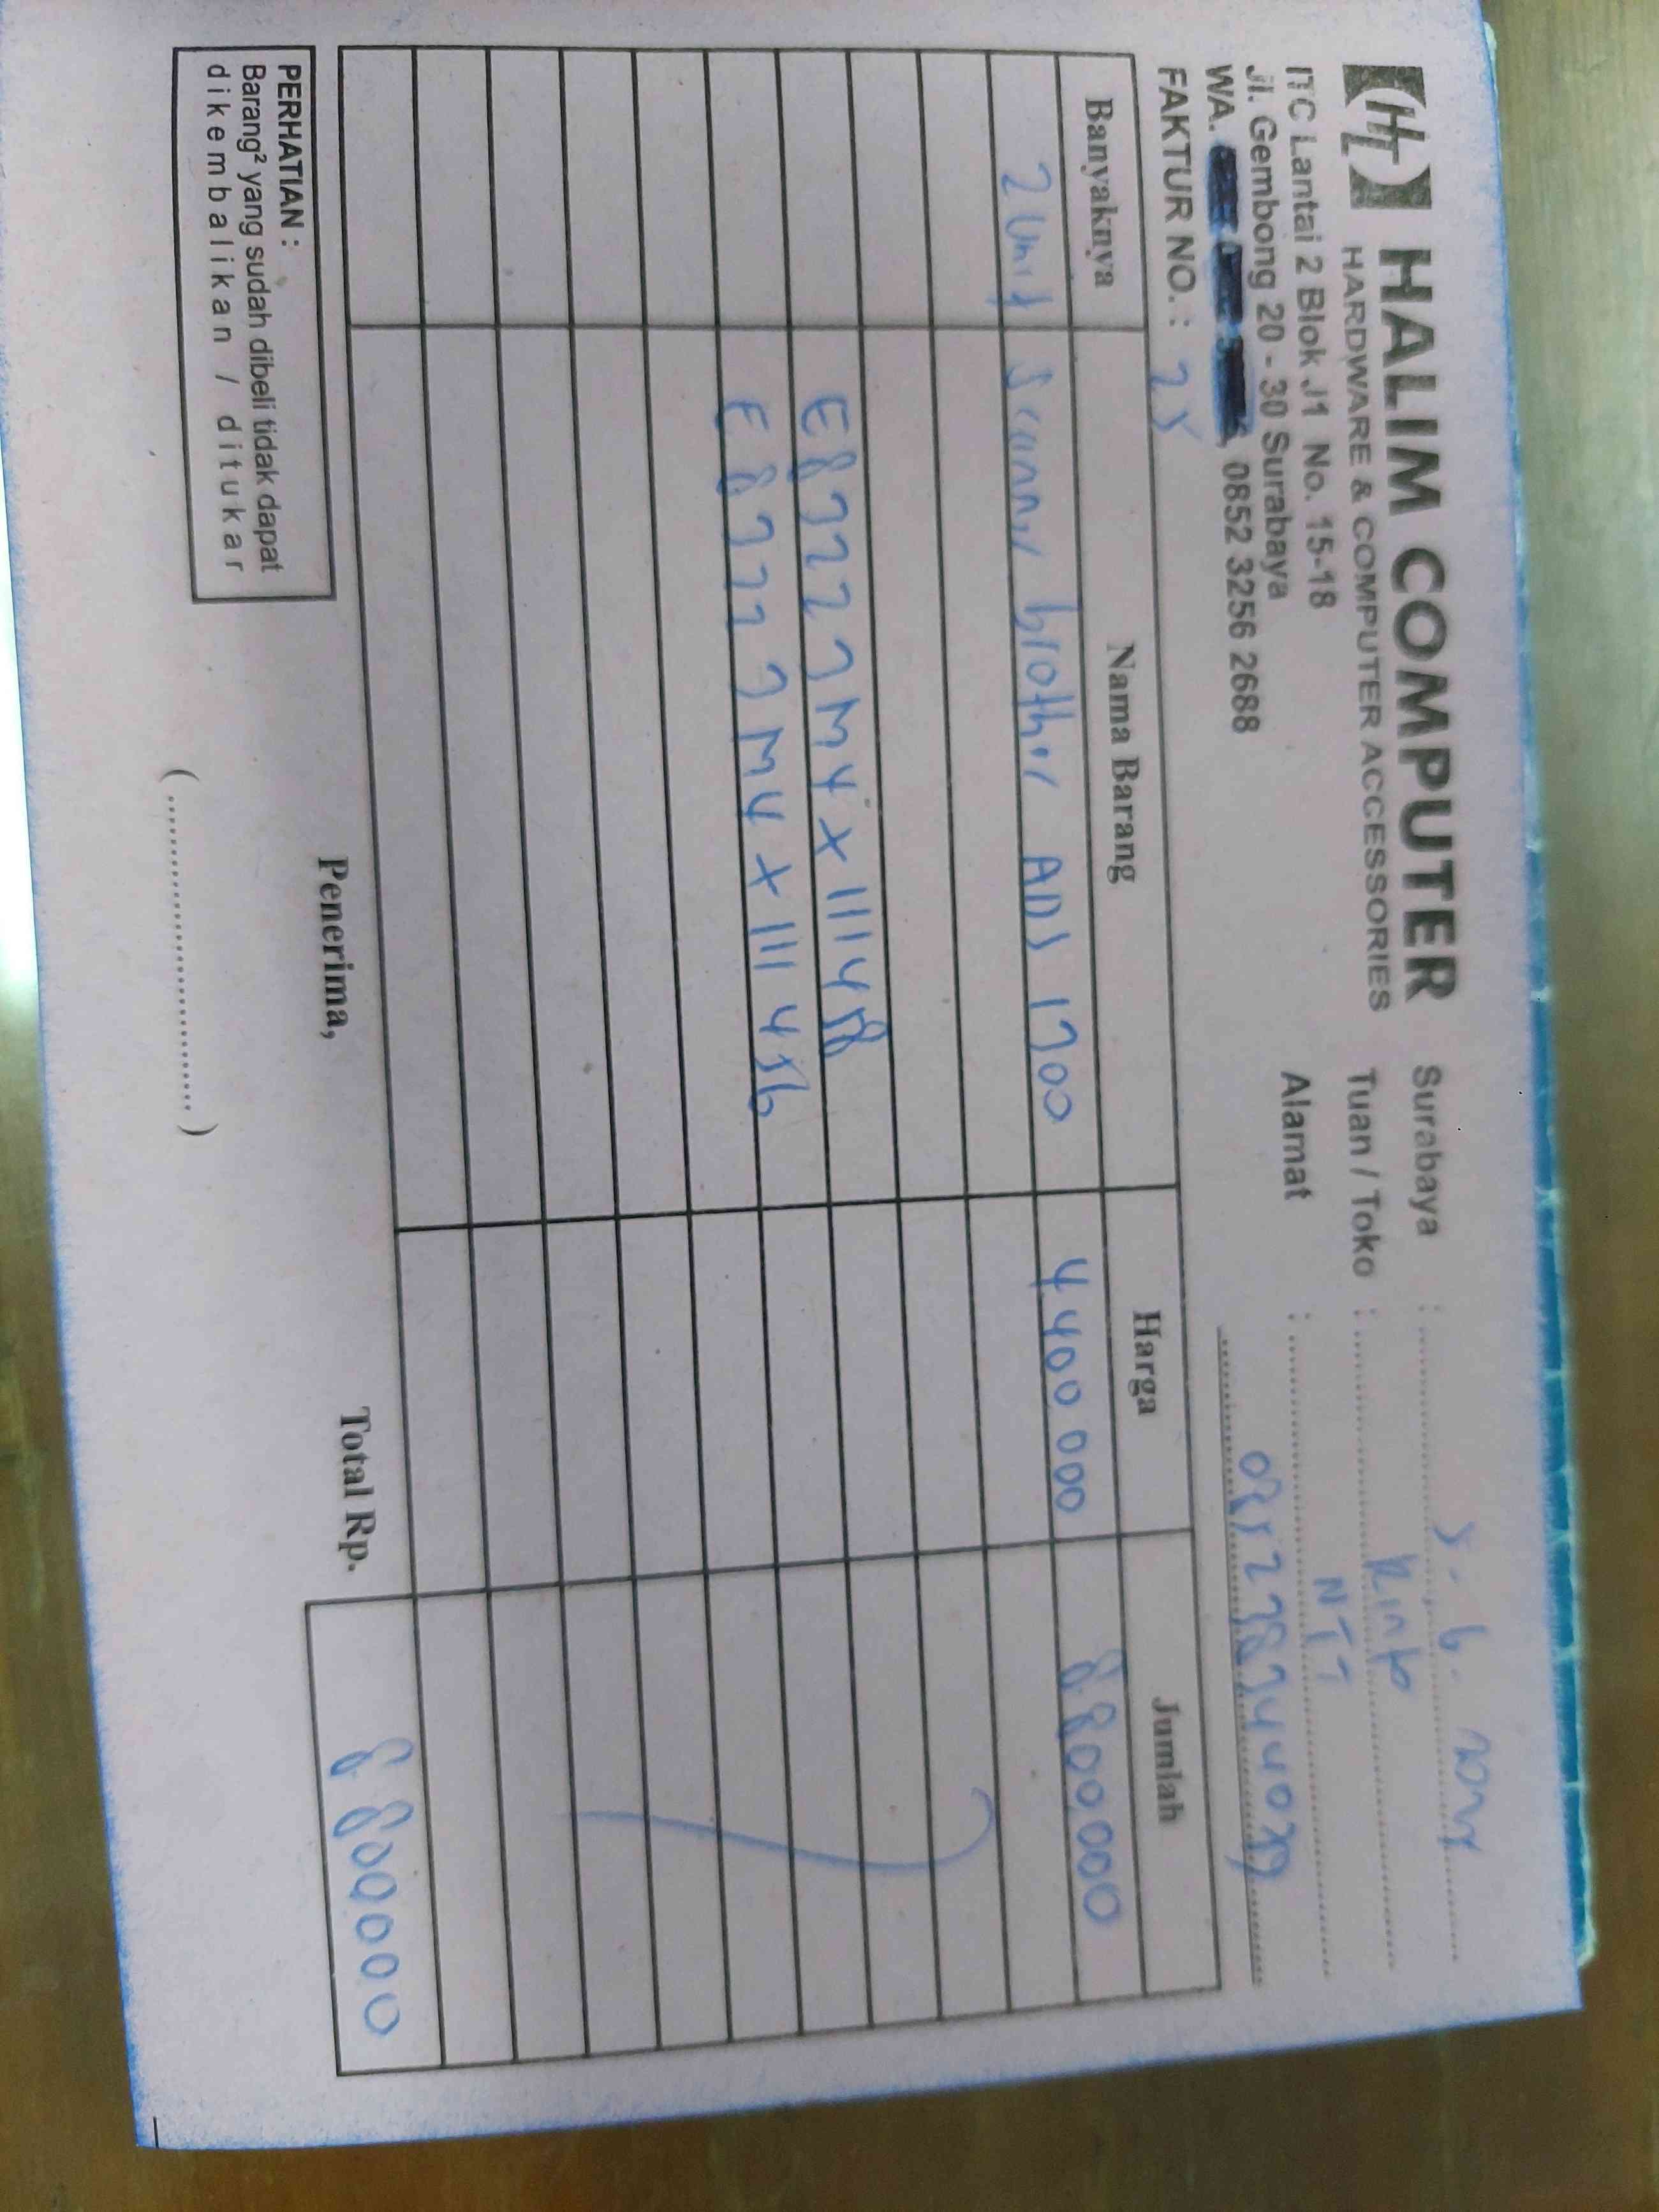 HL HALIM COMPUTER
HARDWARE & COMPUTER ACCESSORIES
ITC Lantai 2 Blok J1 No. 15-18
Jl. Gembong 20 - 30 Surabaya
WA. 0852 3256 2688
FAKTUR NO. :
Surabaya :
Tuan / Toko :
Alamat : NTT
Banyaknya Nama Barang Harga Jumlah
2 Unit Scanner brother ADS 1700 4400000 8.800.000
E872277M4X111458
E87777M4X111456
PERHATIAN :
Barang² yang sudah dibeli tidak dapat
dikembalikan / ditukar
Penerima,
(....................................)
Total Rp. 8.800000